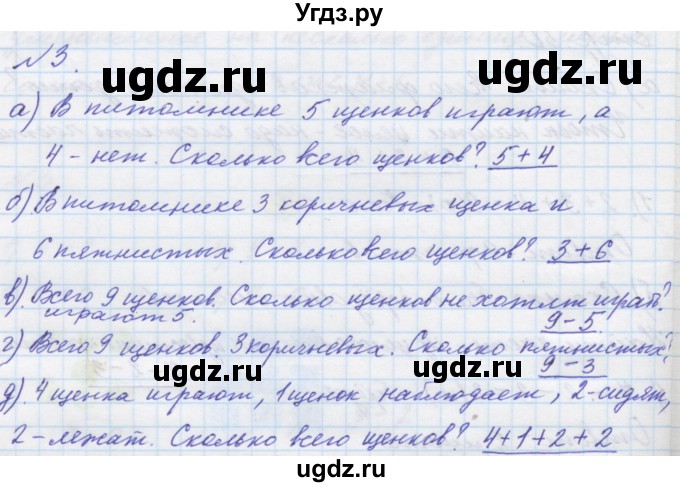 Угдз.ру
№3.
ugdz.ru ugdz.ru
а) В питомнике 5 щенков играют, а
4 - нет. Сколько всего щенков? 5+4
ugdz.ru ugdz.ru
б) В питомнике 3 коричневых щенка и
6 пятнистых. Сколько всего щенков? 3+6
ugdz.ru ugdz.ru
в). Всего 9 щенков. Сколько щенков не хотят играт?
играют 5. 9-5
г) Всего 9 щенков. 3 коричневых. Сколько пятнистых?
ugdz.ru ugdz.ru 9-3
д). 4 щенка играют, 1 щенок наблюдает, 2-сидят,
2-лежат. Сколько всего щенков? 4+1+2+2
ugdz.ru ugdz.ru